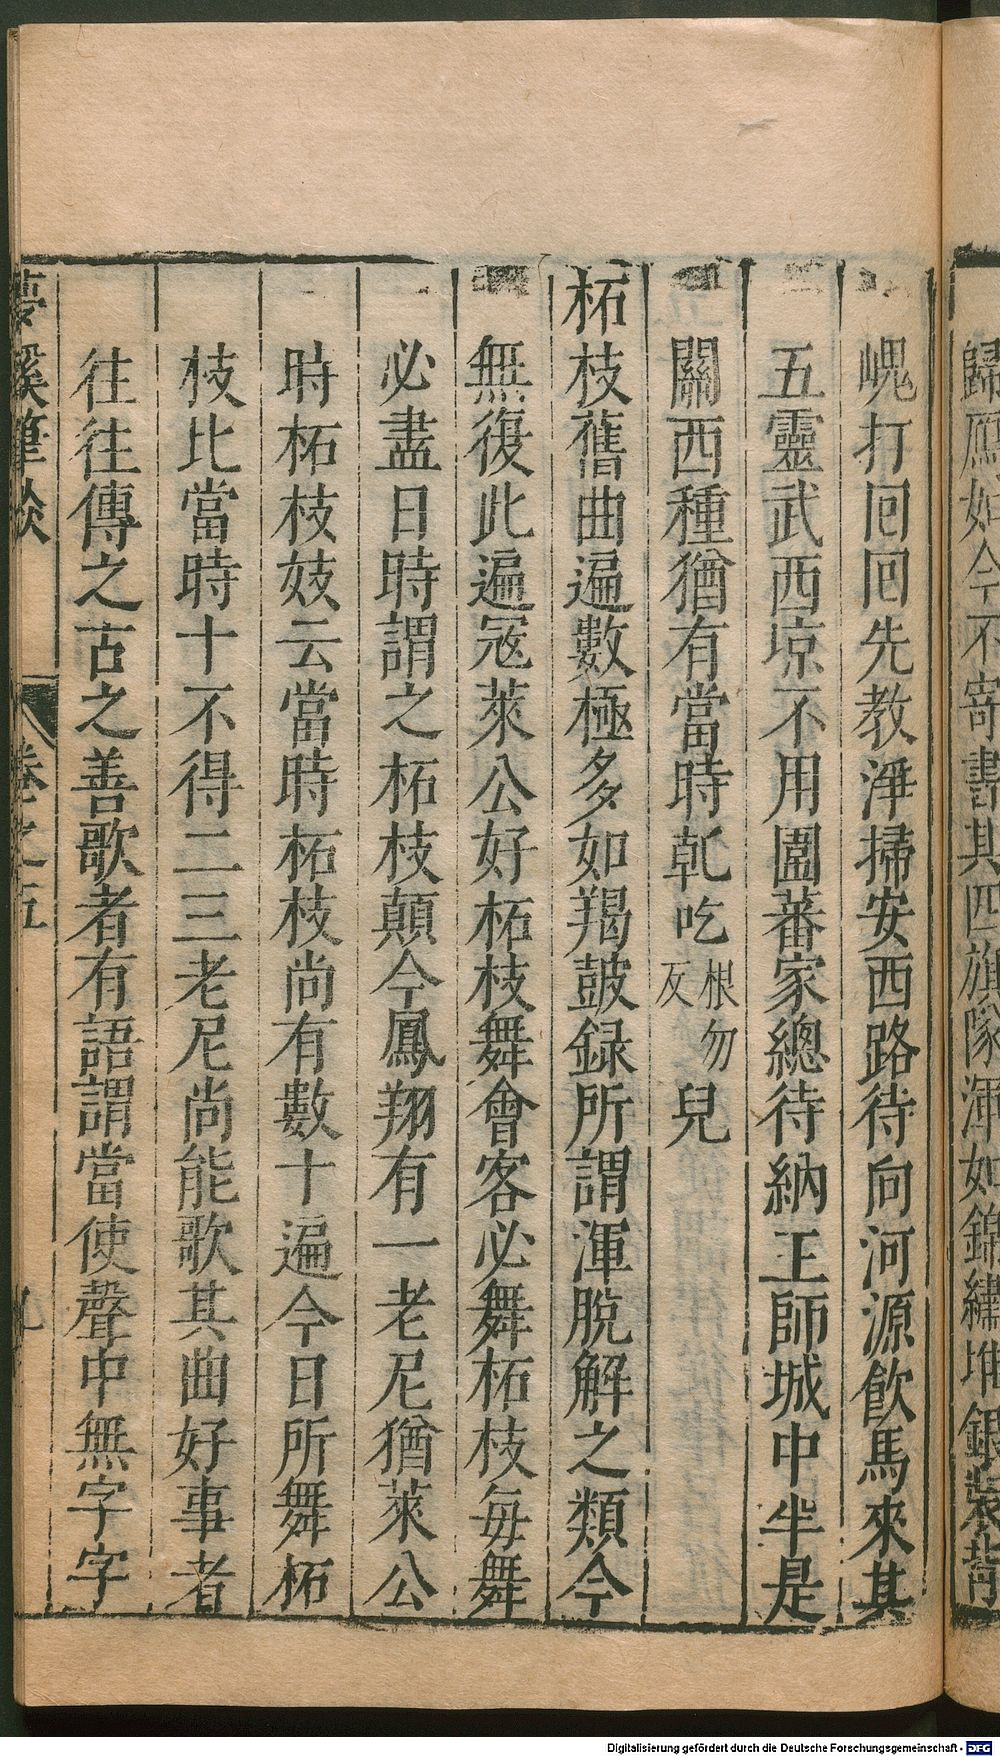 歸鴈如今不寄書其四旗隊渾如錦繡堆銀裝背
嵬打囘囘先教淨掃安西路待向河源飮馬來其
五靈武西凉不用圍蕃家總待納王師城中半是
關西種猶有當時軋吃根勿反兒
柘枝舊曲遍數極多如羯鼓録所謂渾脫解之類今
無復此遍寇萊公好柘枝舞會客必舞柘枝每舞
必盡日時謂之柘枝顛今鳳翔有一老尼猶萊公
時柘枝妓云當時柘枝尚有數十遍今日所舞柘
枝比當時十不得二三老尼尚能歌其曲好事者
往往傳之古之善歌者有語謂當使聲中無字字
夢溪筆談 卷之五 九
Digitalisierung gefördert durch die Deutsche Forschungsgemeinschaft - DFG